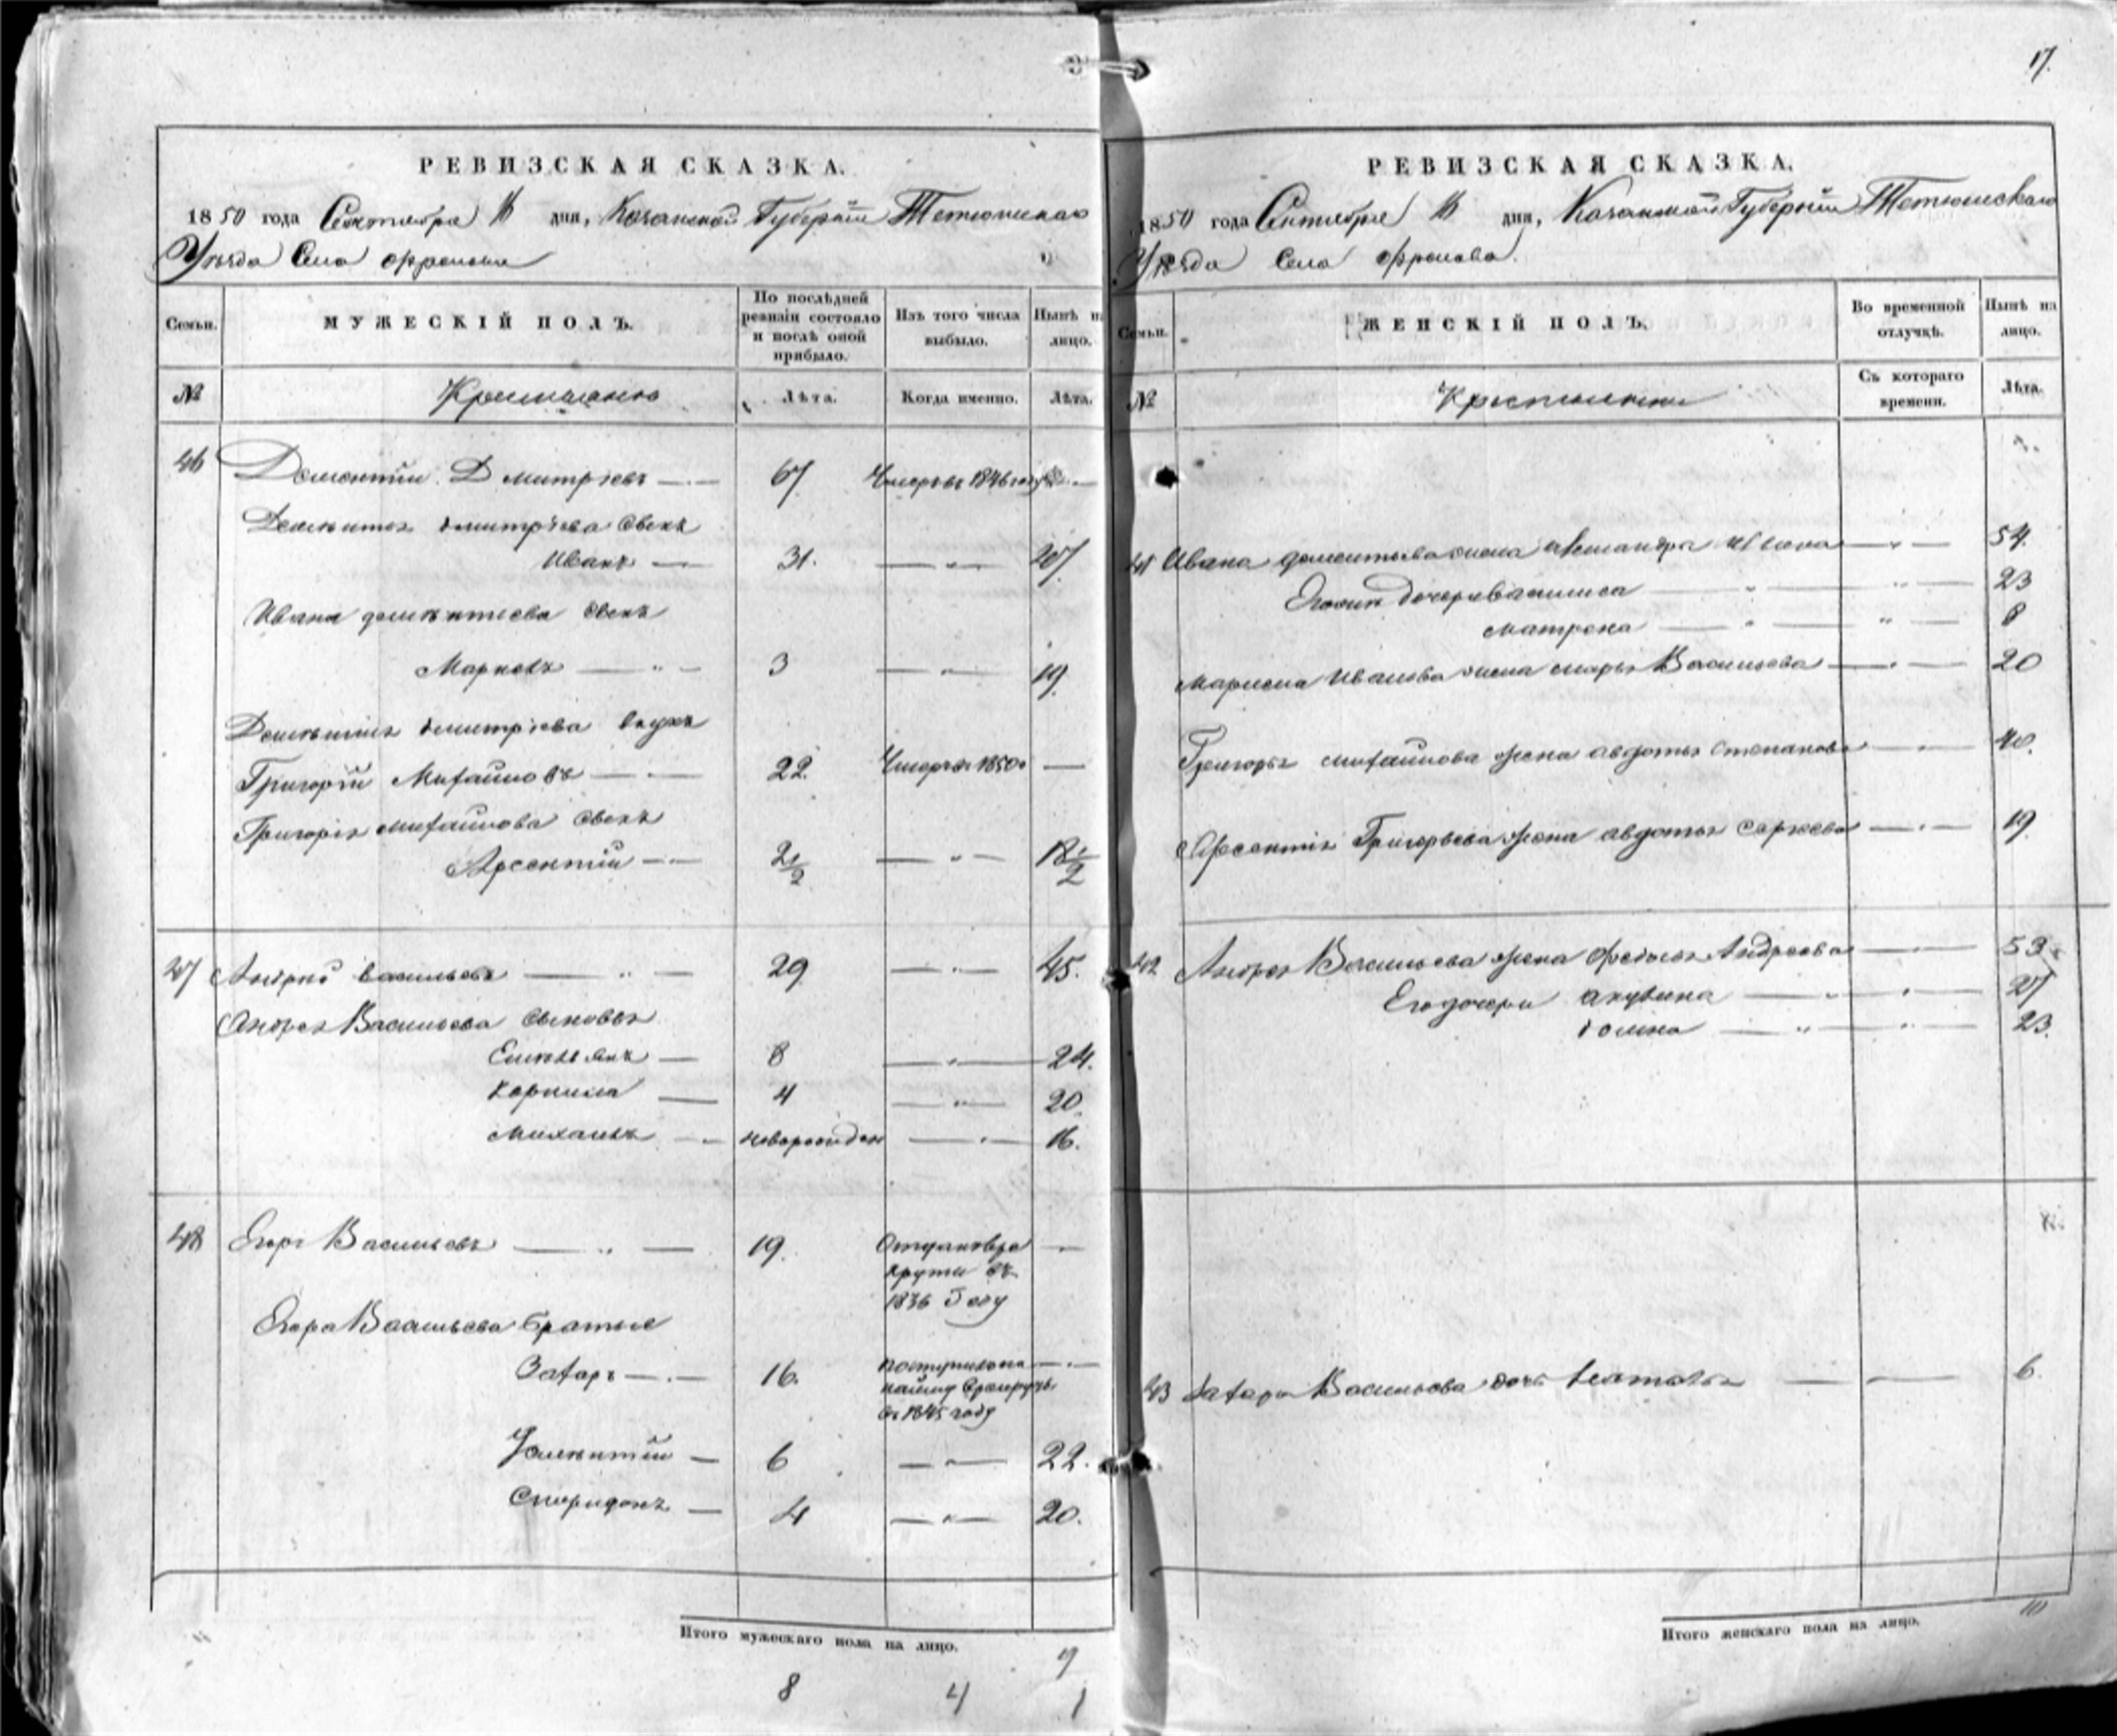 17.
РЕВИЗСКАЯ СКАЗКА.
1850 года Сентября 16 дня, Казанской Губернiи Тетюшскаго
Уѣзда Села Фролова
Семьи.
МУЖЕСКІЙ ПОЛЪ.
По послѣдней ревизіи состояло и послѣ оной прибыло.
Изъ того числа выбыло.
Нынѣ на лицо.
№
Крестьяне
Лѣта.
Когда именно.
Лѣта.
46 Дементiй Дмитрiевъ 67 Умеръ въ 1846 году
Дементiя Дмитрiева сынъ
Иванъ 31. 47.
Ивана Дементiева сынъ
Маркелъ 3 19.
Дементiя Дмитрiева внукъ
Григорiй Михайловъ 22. Умеръ 1850
Григорiя Михайлова сынъ
Арсентiй 2 1/2 18 1/2
47 Андрей Васильевъ 29 45.
Андрея Васильева сыновья
Емельянъ 8 24.
Корнила 4 20.
Михаилъ новорожден 16.
48 Егоръ Васильевъ 19. Отданъ въ ре
круты въ
1836 Году
Егора Васильева братья
Захаръ 16. поступил
въ 1845 году
6 22.
Спиридонъ 4 20.
Итого мужескаго пола на лицо.
8 4
РЕВИЗСКАЯ СКАЗКА.
1850 года Сентября 16 дня, Казанской Губернiи Тетюшскаго
Уѣзда Села Фролова.
Семьи.
ЖЕНСКІЙ ПОЛЪ.
Во временной отлучкѣ.
Нынѣ на лицо.
№
Крестьянки
Съ котораго времени.
Лѣта.
41 Ивана Дементьева жена 54.
Его дочери Василиса 23
Матрена 8
Маркела Иванова жена Марья Васильева 20
Григорья Михайлова жена Авдотья Степанова 40.
Арсентiя Григорьева жена Авдотья Сергеева 19.
42 Андрея Васильева жена Андреева 53.
Его дочери Акулина 27
Домна 23.
43 Захара Васильева дочь 6.
Итого женскаго пола на лицо.
10